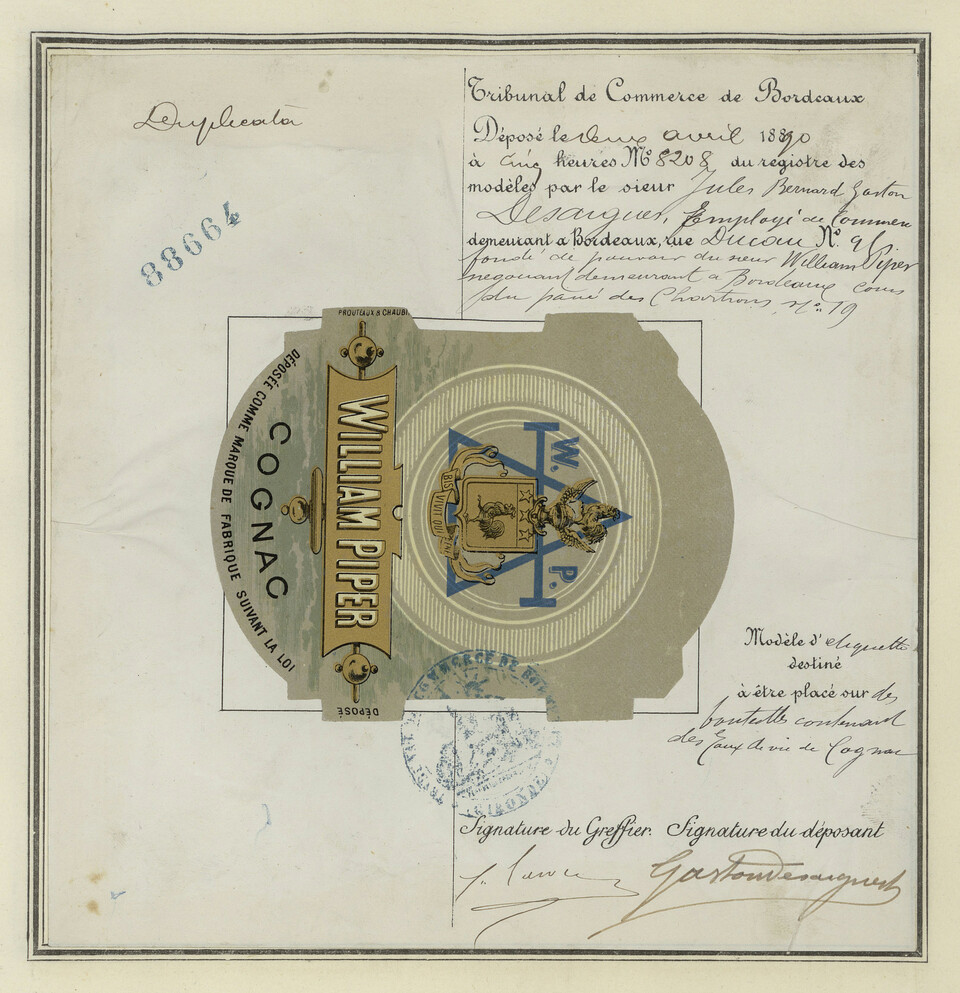 Duplicata
88664
Tribunal de Commerce de Bordeaux
Déposé le deux avril 1890
à cinq heures N° 8208 du registre des
modèles par le sieur Jules Bernard Gaston
Desaigues, Employé de Commerce
demeurant à Bordeaux, rue Ducau N°
fondé de pouvoir du sieur William Piper
négociant demeurant à Bordeaux cours
du pavé des Chartrons, n° 19
DÉPOSÉE COMME MARQUE DE FABRIQUE SUIVANT LA LOI
COGNAC
WILLIAM PIPER
PROUTEAUX & CHAUB
DÉPOSÉ
W. P.
BIS VIVIT QUI
COMMERCE DE
Modèle d'étiquette
destiné
à être placé sur des
bouteilles contenant
des Eaux de vie de Cognac
Signature du Greffier. Signature du déposant